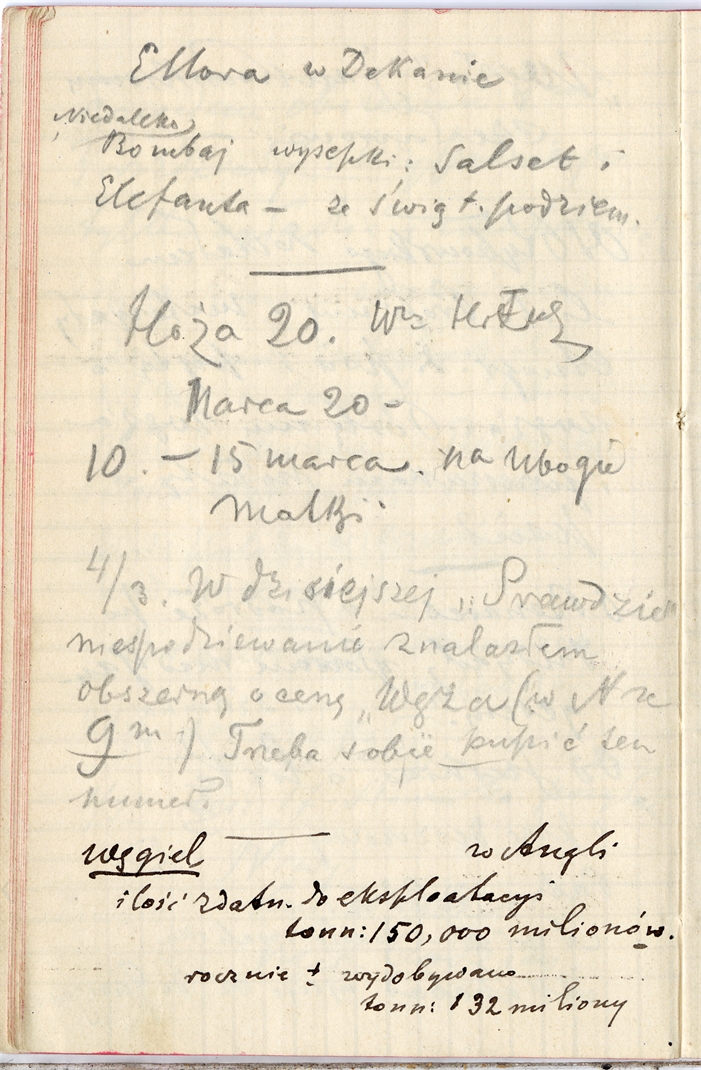 Ellora w Dekanie
Niedaleko
Bombaj wysepki: Salset i
Elefanta – ze świąt. podziem.
Hoża 20.
Marca 20 –
10. – 15 marca. na Ubogie
Matki
4/3. W dzisiejszej „Prawdzie"
niespodziewanie znalazłem
obszerną ocenę „Węża (w N rze
9 m.) Trzeba sobie kupić ten
numer.
węgiel w Angli
ilość zdatn. do eksploatacyi
tonn: 150,000 milionów.
rocznie ± wydobywano
tonn: 132 miliony